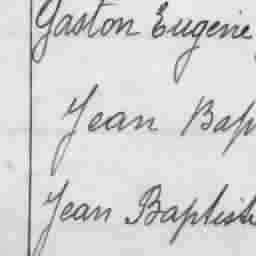 Gaston Eugène
Jean Bap
Jean Baptist